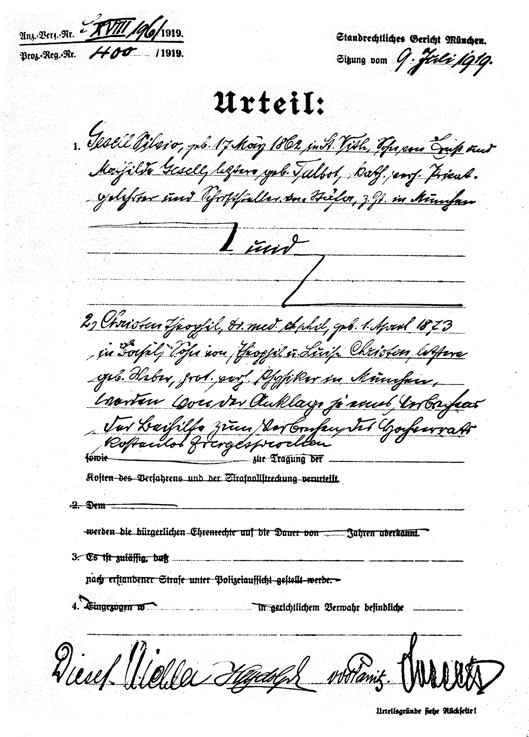 Anz.-Verz.-Nr. XVIII 196/1919.
Proz.-Reg.-Nr. 400 /1919.
Standrechtliches Gericht München.
Sitzung vom 9. Juli 1919.
Urteil:
1. Gesell Silvio, geb. 17 März 1862 in St. Vith, Sohn von Ernst und
Mathilde Gesell, letztere geb. Talbot, kath., verh. Privat-
gelehrter und Schriftsteller von z. Zt. in München
und
2, Christen Theophil, Dr. med. et phil, geb. 1. April 1873
in Basel, Sohn von Theophil u. Luise Christen, letztere
geb. Weber, prot. verh. Physiker in München,
werden von der Anklage je eines Verbrechens
der Beihilfe zum Verbrechen des Hochverrats
kostenlos freigesprochen
sowie zur Tragung der
Kosten des Verfahrens und der Strafvollstreckung verurteilt.
2. Dem
werden die bürgerlichen Ehrenrechte auf die Dauer von Jahren aberkannt.
3. Es ist zulässig, daß
nach erstandener Strafe unter Polizeiaufsicht gestellt werde.
4. Eingezogen w in gerichtlichem Verwahr befindliche
Urteilsgründe siehe Rückseite!